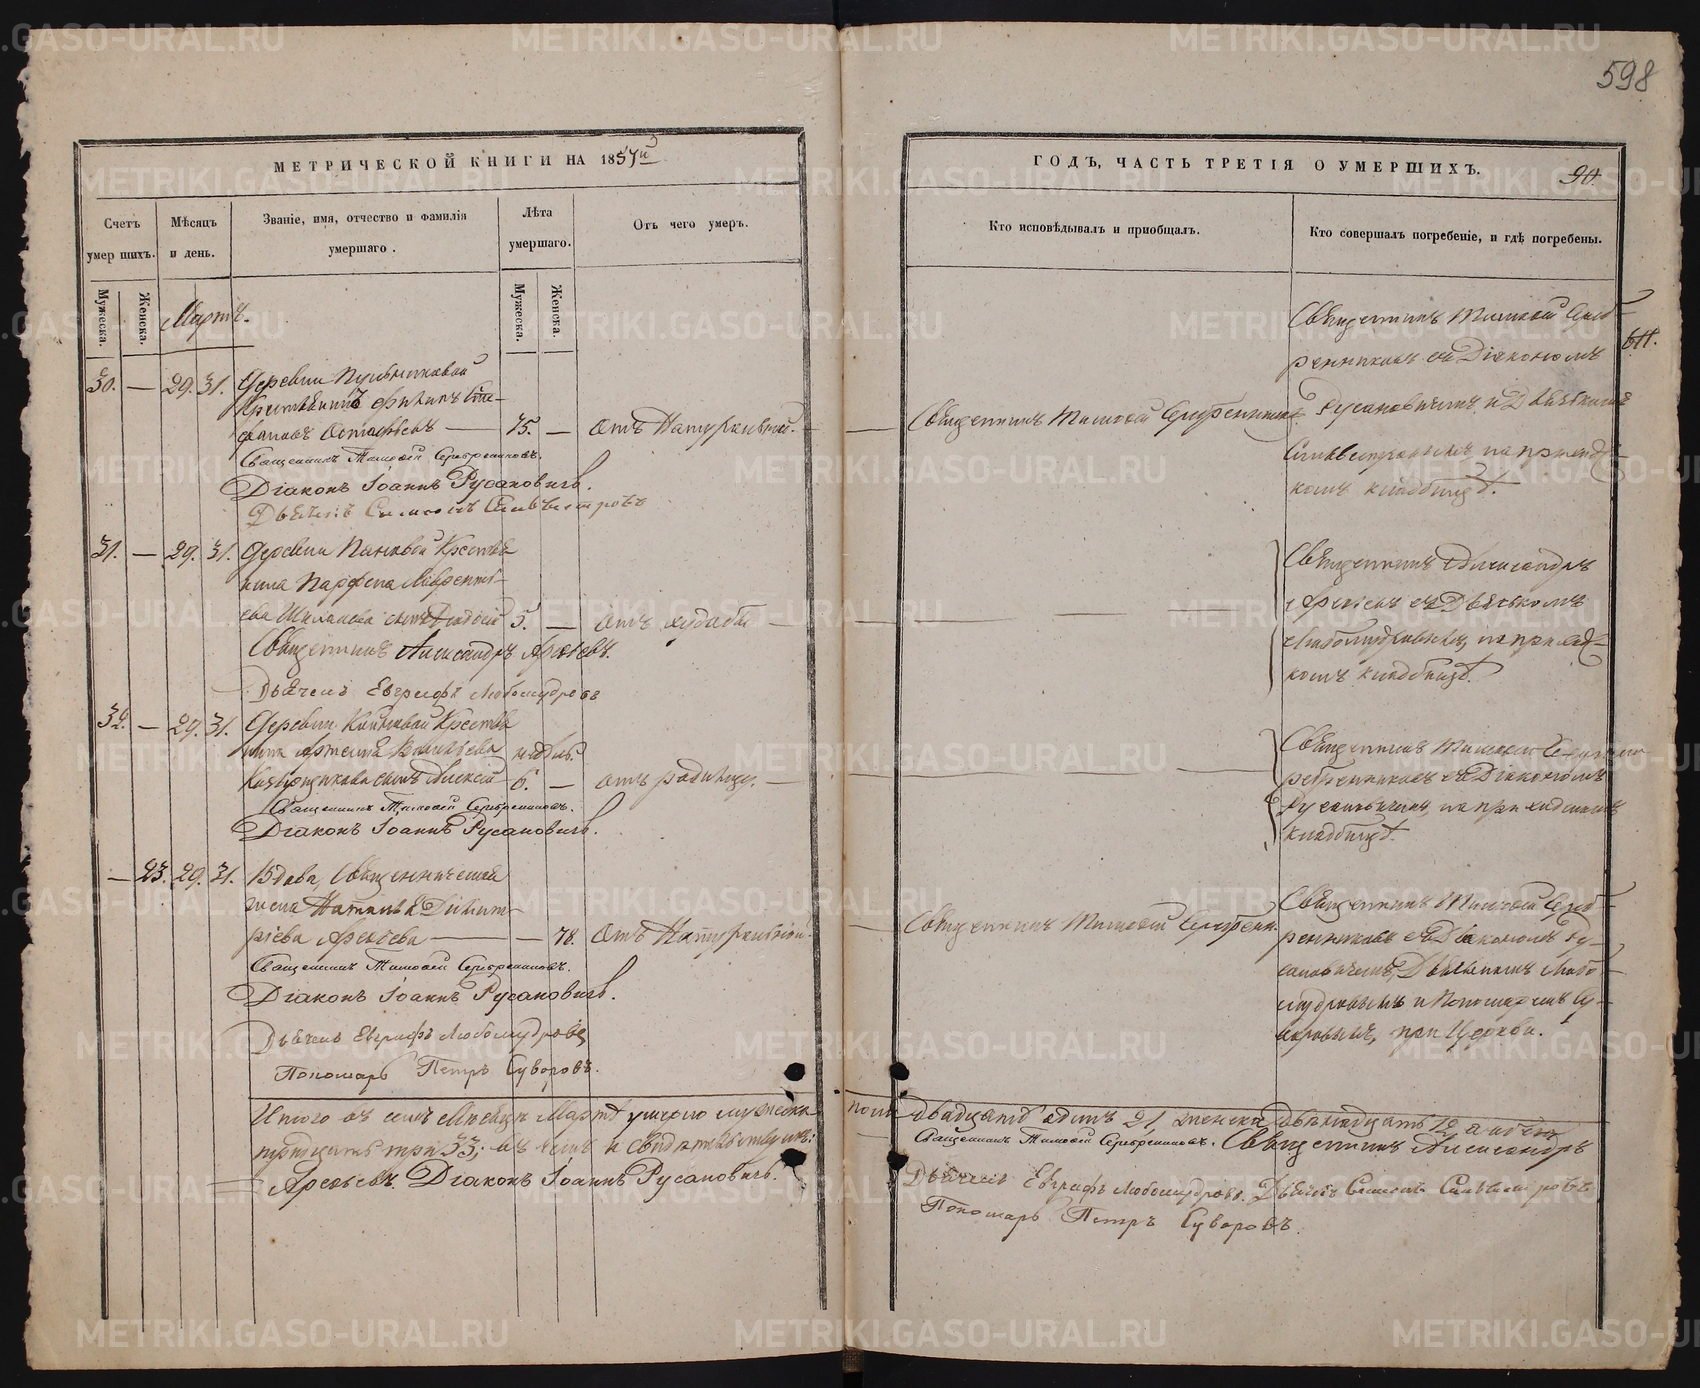 598
МЕТРИЧЕСКОЙ КНИГИ НА 1857й
Счетъ умершихъ.
Мѣсяцъ и день.
Званіе, имя, отчество и фамилія умершаго.
Лѣта умершаго.
Отъ чего умеръ.
Мужеска.
Женска.
Мартъ.
Мужеска.
Женска.
30. — 29. 31. Деревни
Филипъ Сте-
фановъ 75. — Отъ Натуральной.
Священникъ Тимоѳей Серебренниковъ.
Діаконъ Іоаннъ Русановичъ.
Дьячекъ Симеонъ Сильвестровъ
31. — 29. 31. Деревни Панковой Крестья
нина Парѳена Лавренті-
ева сынъ 5. — Отъ
Священникъ Александръ Арефьевъ.
Дьячекъ Евграфъ Любомудровъ
32. — 29. 31. Деревни Крестья
нина Артемія Васильева недѣль
сынъ Алексій 6. — отъ родимца. —
Священникъ Тимоѳей Серебренниковъ.
Діаконъ Іоаннъ Русановичъ.
— 23. 29. 31. Вдова, Священническая
жена Димит-
ріева Арефьева — — 78. Отъ Натуральной.
Священникъ Тимоѳей Серебренниковъ.
Діаконъ Іоаннъ Русановичъ.
Дьячекъ Евграфъ Любомудровъ
Пономарь Петръ Суворовъ.
Итого въ семъ Мѣсяцѣ Мартѣ умерло мужеска
тридцать три 33; въ чемъ и свидѣтельствуемъ:
Арефьевъ Діаконъ Іоаннъ Русановичъ.
ГОДЪ, ЧАСТЬ ТРЕТІЯ О УМЕРШИХЪ.
90.
Кто исповѣдывалъ и приобщалъ.
Кто совершалъ погребеніе, и гдѣ погребены.
Священникъ Тимоѳей Сереб-
ренниковъ съ Діакономъ
Священникъ Тимоѳей Серебренниковъ.
Русановичемъ и Дьячкомъ
Сильвестровымъ, на приход-
комъ кладбищѣ.
Священникъ Александръ
Арефьевъ съ Дьячкомъ
Любомудровымъ, на приход-
комъ кладбищѣ.
Священникъ Тимоѳей
ребренниковъ съ Діакономъ
Русановичемъ, на приходскомъ
кладбищѣ.
Священникъ Тимоѳей Серебренн.
Священникъ Тимоѳей Сереб-
ренниковъ съ Діакономъ Ру-
сановичемъ, Дьячкомъ Любо-
мудровымъ и Пономаремъ Су-
воровымъ, при Церкви.
двадцать одинъ 21, женска двѣнадцать 12, а
Священникъ Тимоѳей Серебренниковъ. Священникъ Александръ
Дьячекъ Евграфъ Любомудровъ. Дьячекъ Симеонъ Сильвестровъ
Пономарь Петръ Суворовъ.
METRIKI.GASO-URAL.RU